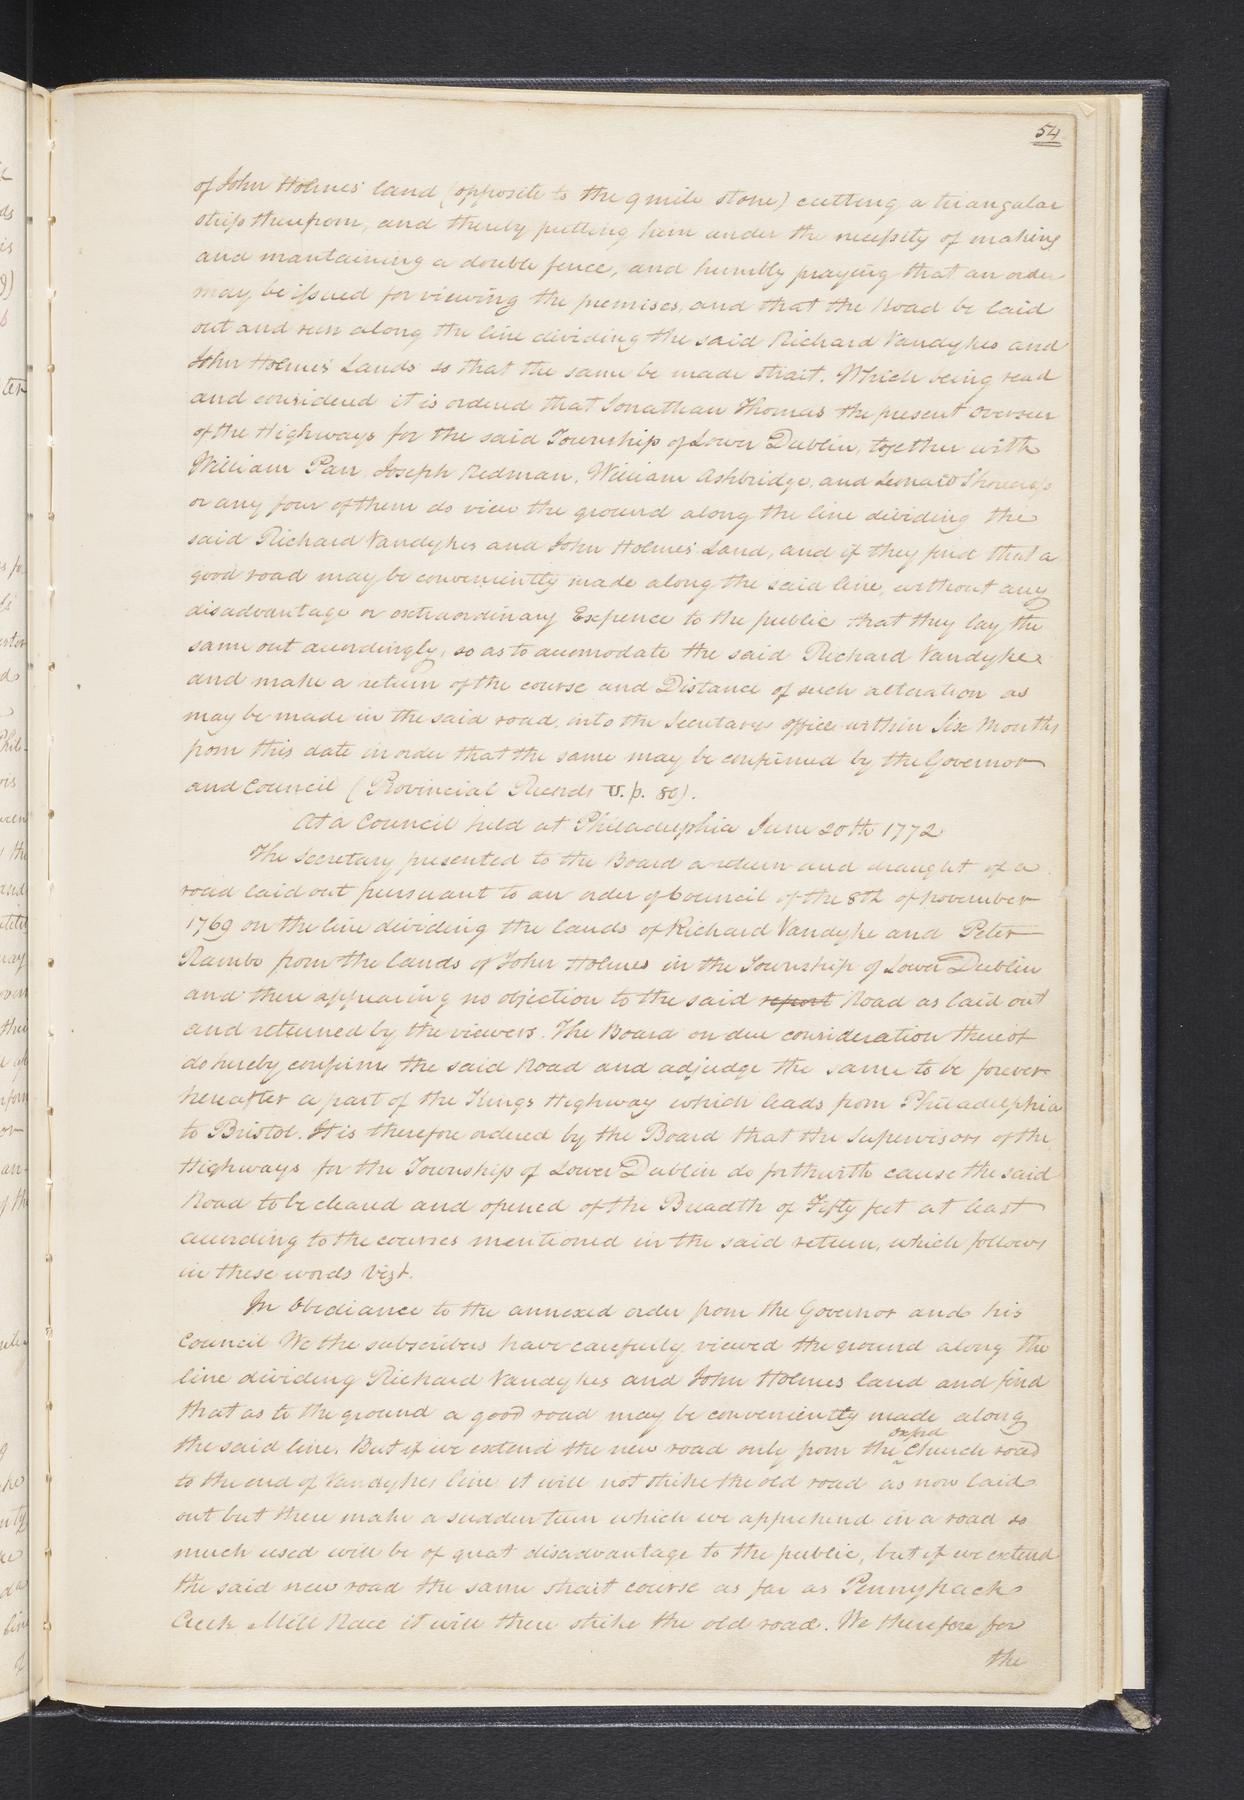 54
of John Holmes' land (opposite to the 9 mile stone) cutting a triangular
strip therefrom, and thereby putting him under the necessity of making
and mantaining a double fence, and humbly praying that an order
may be issued for viewing the premises, and that the Road be laid
out and run along the line dividing the said Richard Vandykes and
John Holmes' Lands so that the same be made strait. Which being read
and considered it is ordered that Jonathan Thomas the present overseer
of the Highways for the said Township of Lower Dublin, together with
William Parr, Joseph Redman, William Ashbridge, and Leonard
or any four of them do view the ground along the line dividing the
said Richard Vandykes and John Holmes' Land, and if they find that a
good road may be conveniently made along the said line, without any
disadvantage or extraordinary Expence to the public that they lay the
same out accordingly, so as to accomodate the said Richard Vandyke
and make a return of the course and Distance of such alteration as
may be made in the said road, into the Secretarys office within Six Months
from this date in order that the same may be confirmed by the Governor
and Council (Provincial Records U. p. 80).
At a Council held at Philadelphia June 20th 1772
The Secretary presented to the Board a return and draught of a
road laid out pursuant to an order of Council of the 8th of November
1769 on the line dividing the lands of Richard Vandyke and Peter
Rambo from the lands of John Holmes in the Township of Lower Dublin
and there appearing no objection to the said report Road as laid out
and returned by the viewers. The Board on due consideration thereof
do hereby confirm the said Road and adjudge the same to be forever
hereafter a part of the Kings Highway which leads from Philadelphia
to Bristol. It is therefore ordered by the Board that the Supervisors of the
Highways for the Township of Lower Dublin do forthwith cause the said
Road to be cleared and opened of the Breadth of Fifty feet at least
according to the courses mentioned in the said return, which follows
in these words Vizt.
In Obediance to the annexed order from the Governor and his
Council We the subscribers have carefully viewed the ground along the
line dividing Richard Vandykes and John Holmes land and find
that as to the ground a good road may be conveniently made along
the said line. But if we extend the new road only from the Oxford Church road
to the end of Vandykes line it will not strike the old road as now laid
out but there make a sudden turn which we apprehend in a road so
much used will be of great disadvantage to the public, but if we extend
the said new road the same strait course as far as Pennypack
Creek Mill Race it will there strike the old road. We therefore for
the